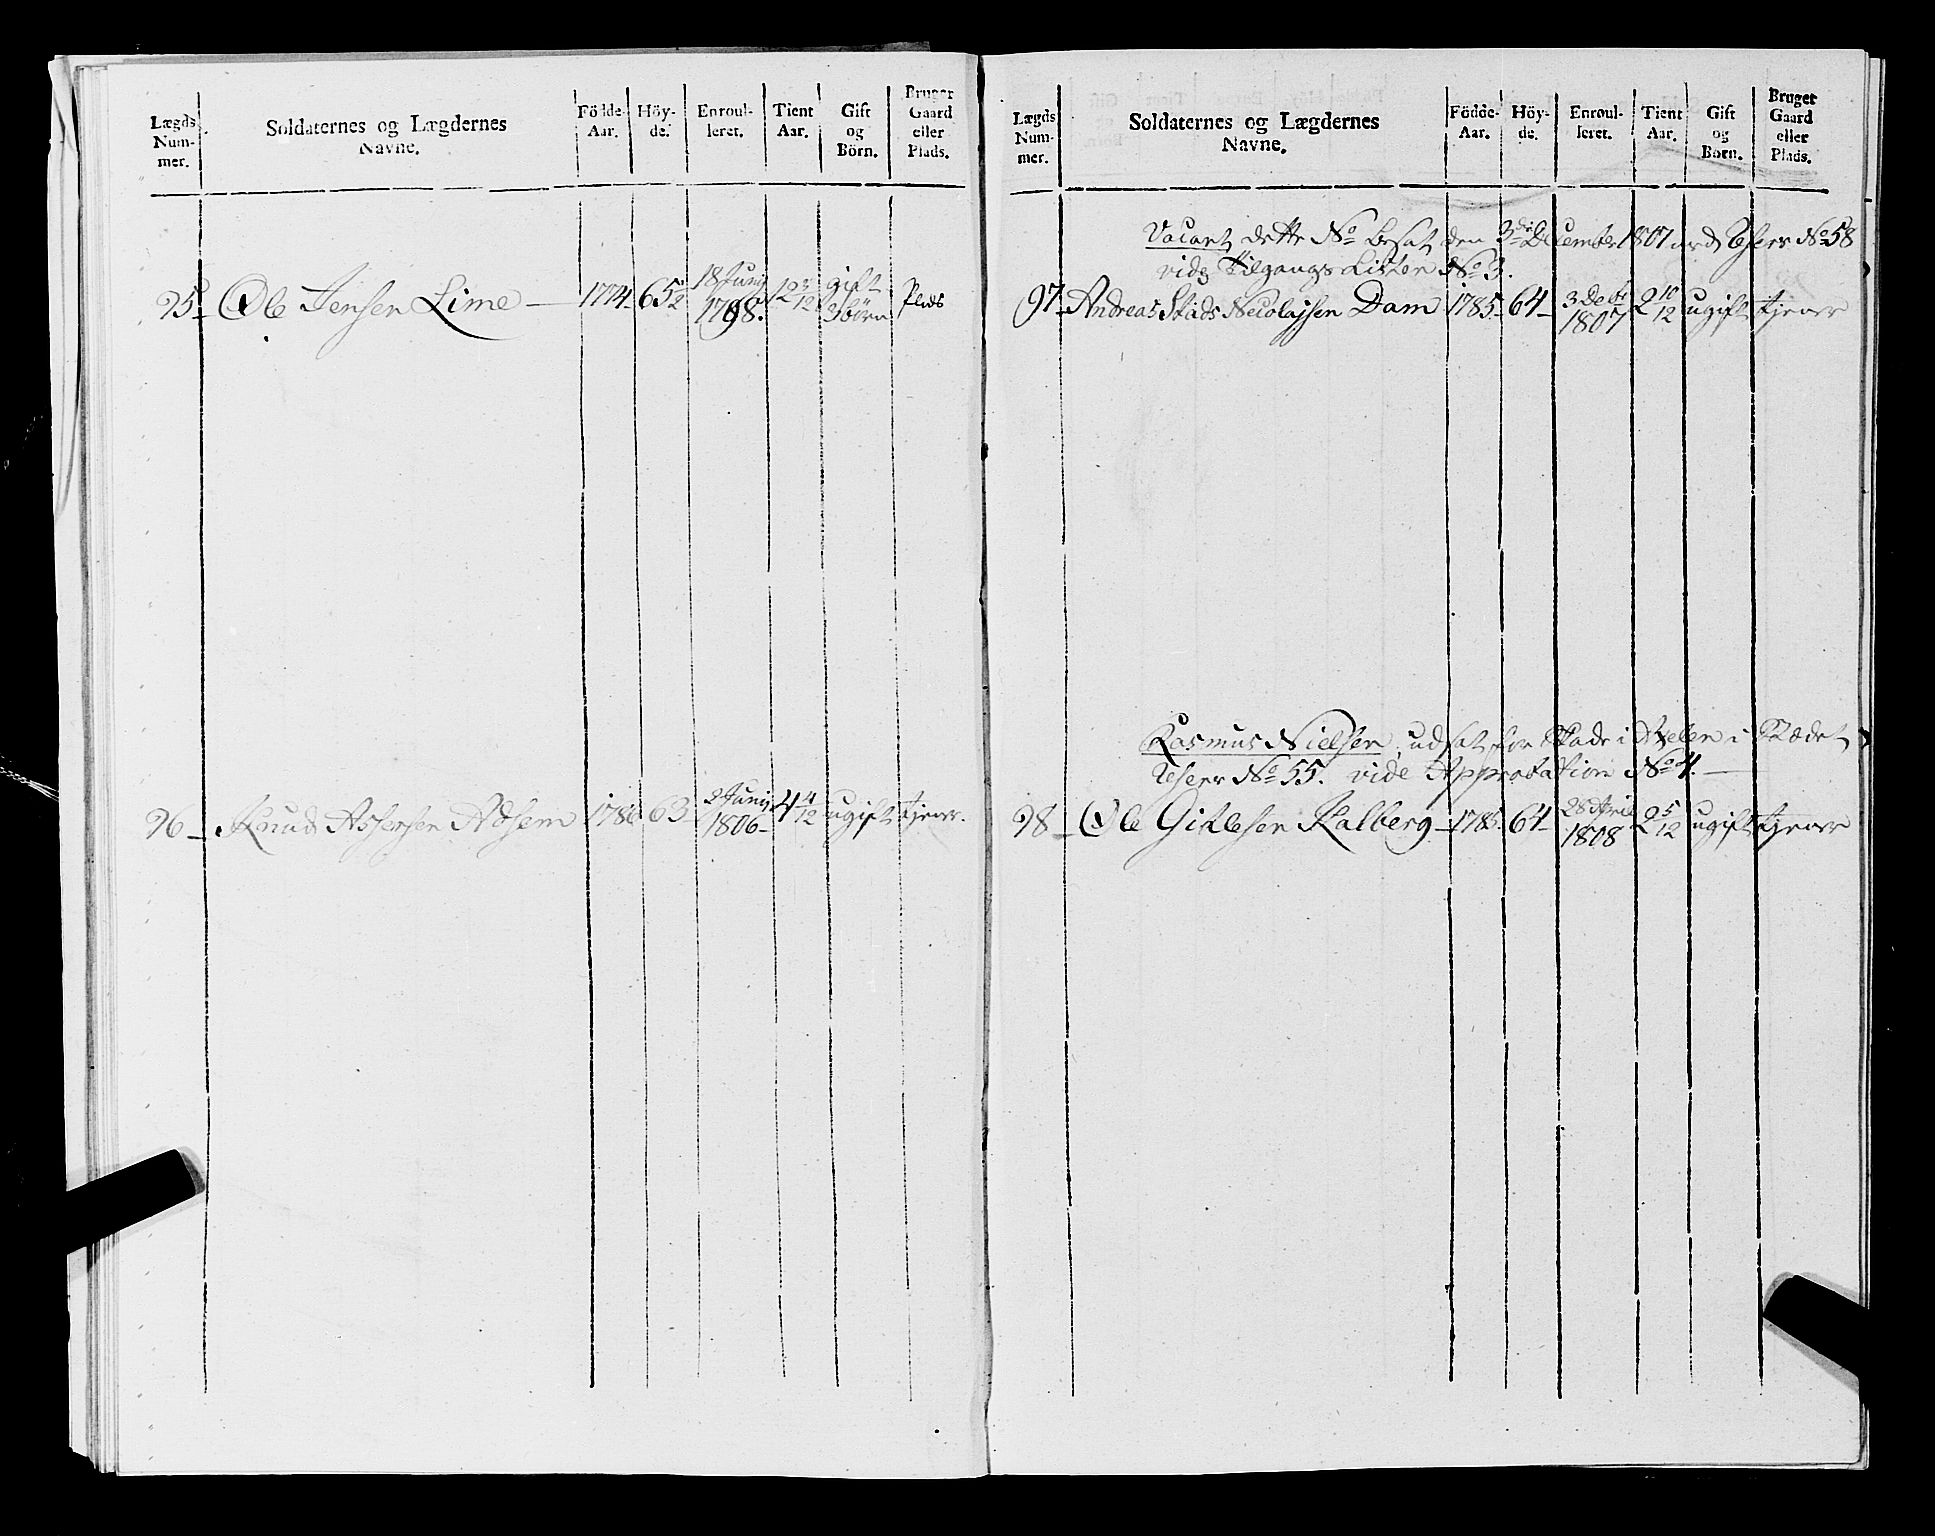 Lægds Num-mer. Soldaternes og Lægdernes Navne. Födde-Aar. Höy-de. Enroul-leret. Tient Aar. Gift og Börn. Bruger Gaard eller Plads.
18 Junij gift
95 Ole Jensen Lime 1774 65½ 1798. 12 3/12 3 börn Plads
2 Junij
96 Knud Assersen Adsem 1786 63 1806 4 4/12 ugift tjener.
Lægds Num-mer. Soldaternes og Lægdernes Navne. Födde-Aar. Höy-de. Enroul-leret. Tient Aar. Gift og Börn. Bruget Gaard eller Plads.
Vacant dette No besat den 3die December 1807 med Reserv No 58
vide Tilgangs Listen No 3.
3 Decbr
97 Andreas Stads Nicolajsen Dam 1785 64 1807 2 10/12 ugift tjener
Rasmus Nielsen udsat for Skade i i Stædet
Reserv No 55. vide Approbation No 4.
28 April
98 Ole Gitlesen Kalberg 1785 64 1808 2 5/12 ugift tjener